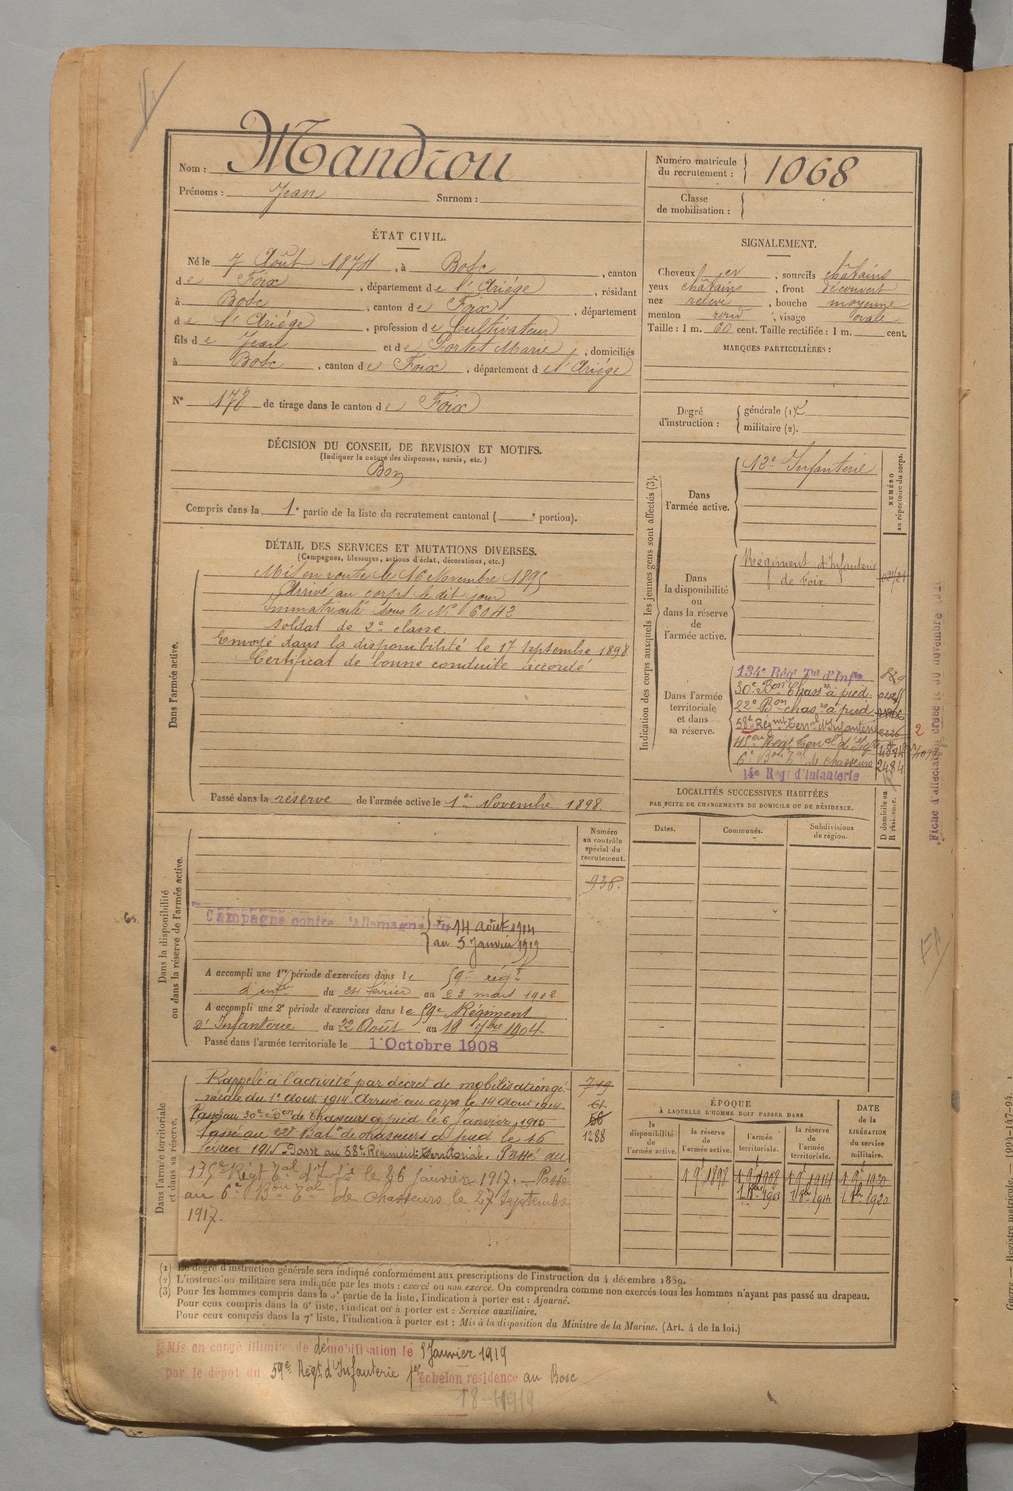 Nom : Mandrou
Prénoms : Jean Surnom :
Numéro matricule
du recrutement : 1068
Classe
de mobilisation :
ÉTAT CIVIL.
Né le 7 Août 1874, à Bosc, canton
de Foix, département de l'Ariége, résidant
à Bosc, canton de Foix, département
de l'Ariége, profession de Cultivateur
fils de Jean et de Fortet Marie, domiciliés
à Bosc, canton de Foix, département de l'Ariége
N° 178 de tirage dans le canton de Foix
SIGNALEMENT.
Cheveux et, sourcils châtains
yeux châtains, front découvert
nez relevé, bouche moyenne
menton rond, visage ovale
Taille : 1 m. 60 cent. Taille rectifiée : 1 m. cent.
MARQUES PARTICULIÈRES :
Degré
d'instruction :
générale (1)
militaire (2).
DÉCISION DU CONSEIL DE REVISION ET MOTIFS.
(Indiquer la nature des dispenses, sursis, etc.)
Bon
Compris dans la 1e partie de la liste du recrutement cantonal ( e portion).
DÉTAIL DES SERVICES ET MUTATIONS DIVERSES.
(Campagnes, blessures, actions d'éclat, décorations, etc.)
Dans l'armée active.
Mis en route le 16 Novembre 1895
Arrivé au corps le dit jour
Immatriculé sous le N° 6042
soldat de 2e classe.
Envoyé dans la disponibilité le 17 septembre 1898
Certificat de bonne conduite accordé
Passé dans la réserve de l'armée active le 1er Novembre 1898
Indication des corps auxquels les jeunes gens sont affectés (3).
NUMÉRO
au répertoire du corps.
Dans
l'armée active.
12e Infanterie
Dans
la disponibilité
ou
dans la réserve
de
l'armée active.
Régiment d'Infanterie
de Foix
Dans l'armée
territoriale
et dans
sa réserve.
134e Régt Tal d'Infie
30e Bon Chasrs à pied
22e Bon chasrs à pied
58e Régmt Terral d'Infanterie
6e Bon Tal de chasseurs 2484
14e Régt d'Infanterie
LOCALITÉS SUCCESSIVES HABITÉES
PAR SUITE DE CHANGEMENTS DE DOMICILE OU DE RÉSIDENCE.
Dates. Communes. Subdivisions
de région.
D domicile ou
R résidence.
Dans la disponibilité
ou dans la réserve de l'armée active.
Numéro
au contrôle
spécial du
recrutement.
938.
Campagne contre l'Allemagne du 14 août 1914
au 5 Janvier 1919
A accompli une 1re période d'exercices dans le 59e régt
d'infie du 24 février au 23 mars 1902
A accompli une 2e période d'exercices dans le 59e Régiment
d'Infanterie du 22 Août au 18 7bre 1904
Passé dans l'armée territoriale le 1 Octobre 1908
Dans l'armée territoriale
et dans sa réserve.
Rappelé à l'activité par décret de mobilisation gé-
nérale du 1er Août 1914. Arrivé au corps le 14 Août 1914
Passé au 30e Bon de Chasseurs à pied le 6 Janvier 1915
Passé au 22e Bat. de chasseurs à pied le 16
février 1915 Passé au 58e Régiment Territorial. Passé au
175e Régt Tal d'Ifie le 26 janvier 1917. Passé
au 6e Bon Tal de chasseurs le 27 Septembre
1917.
1288
ÉPOQUE
À LAQUELLE L'HOMME DOIT PASSER DANS
la
disponibilité
de
l'armée active.
la réserve
de
l'armée active.
l'armée
territoriale.
la réserve
de
l'armée
territoriale.
DATE
de la
LIBÉRATION
du service
militaire.
(1) Le degré d'instruction générale sera indiqué conformément aux prescriptions de l'instruction du 4 décembre 1889.
(2) L'instruction militaire sera indiquée par les mots : exercé ou non exercé. On comprendra comme non exercés tous les hommes n'ayant pas passé au drapeau.
(3) Pour les hommes compris dans la 5e partie de la liste, l'indication à porter est : Ajourné.
Pour ceux compris dans la 6e liste, l'indication à porter est : Service auxiliaire.
Pour ceux compris dans la 7e liste, l'indication à porter est : Mis à la disposition du Ministre de la Marine. (Art. 4 de la loi.)
Mis en congé illimité de démobilisation le 5 Janvier 1919
par le dépôt du 59e Régt d'Infanterie 1er échelon résidence au Bosc